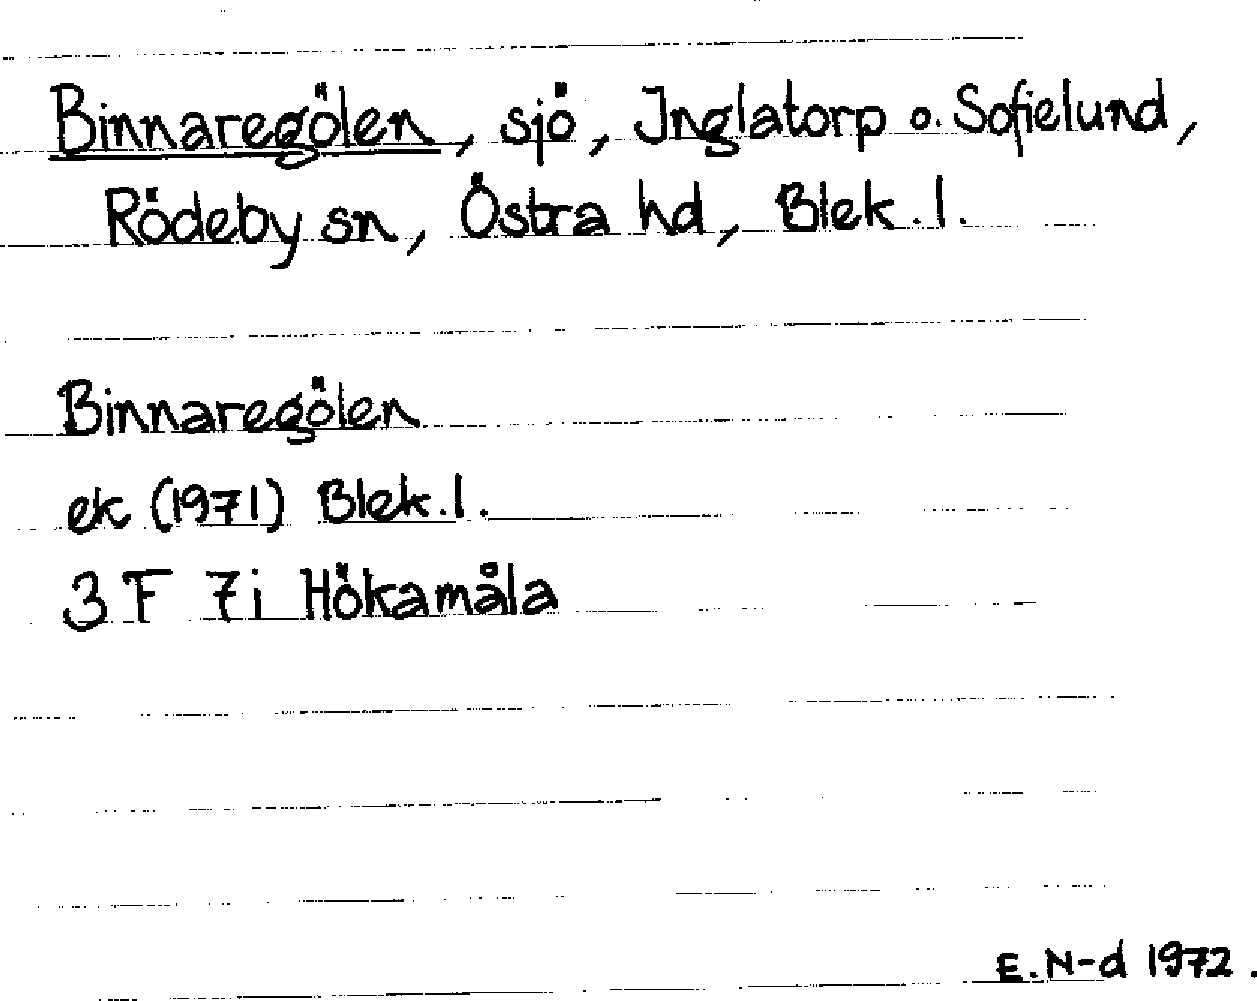 Binnaregölen, sjö, Inglatorp o. Sofielund,
Rödeby sn, Östra hd, Blek. l.
Binnaregölen
ek (1971) Blek. l.
3 F 7i Hökamåla
E. N-d 1972.